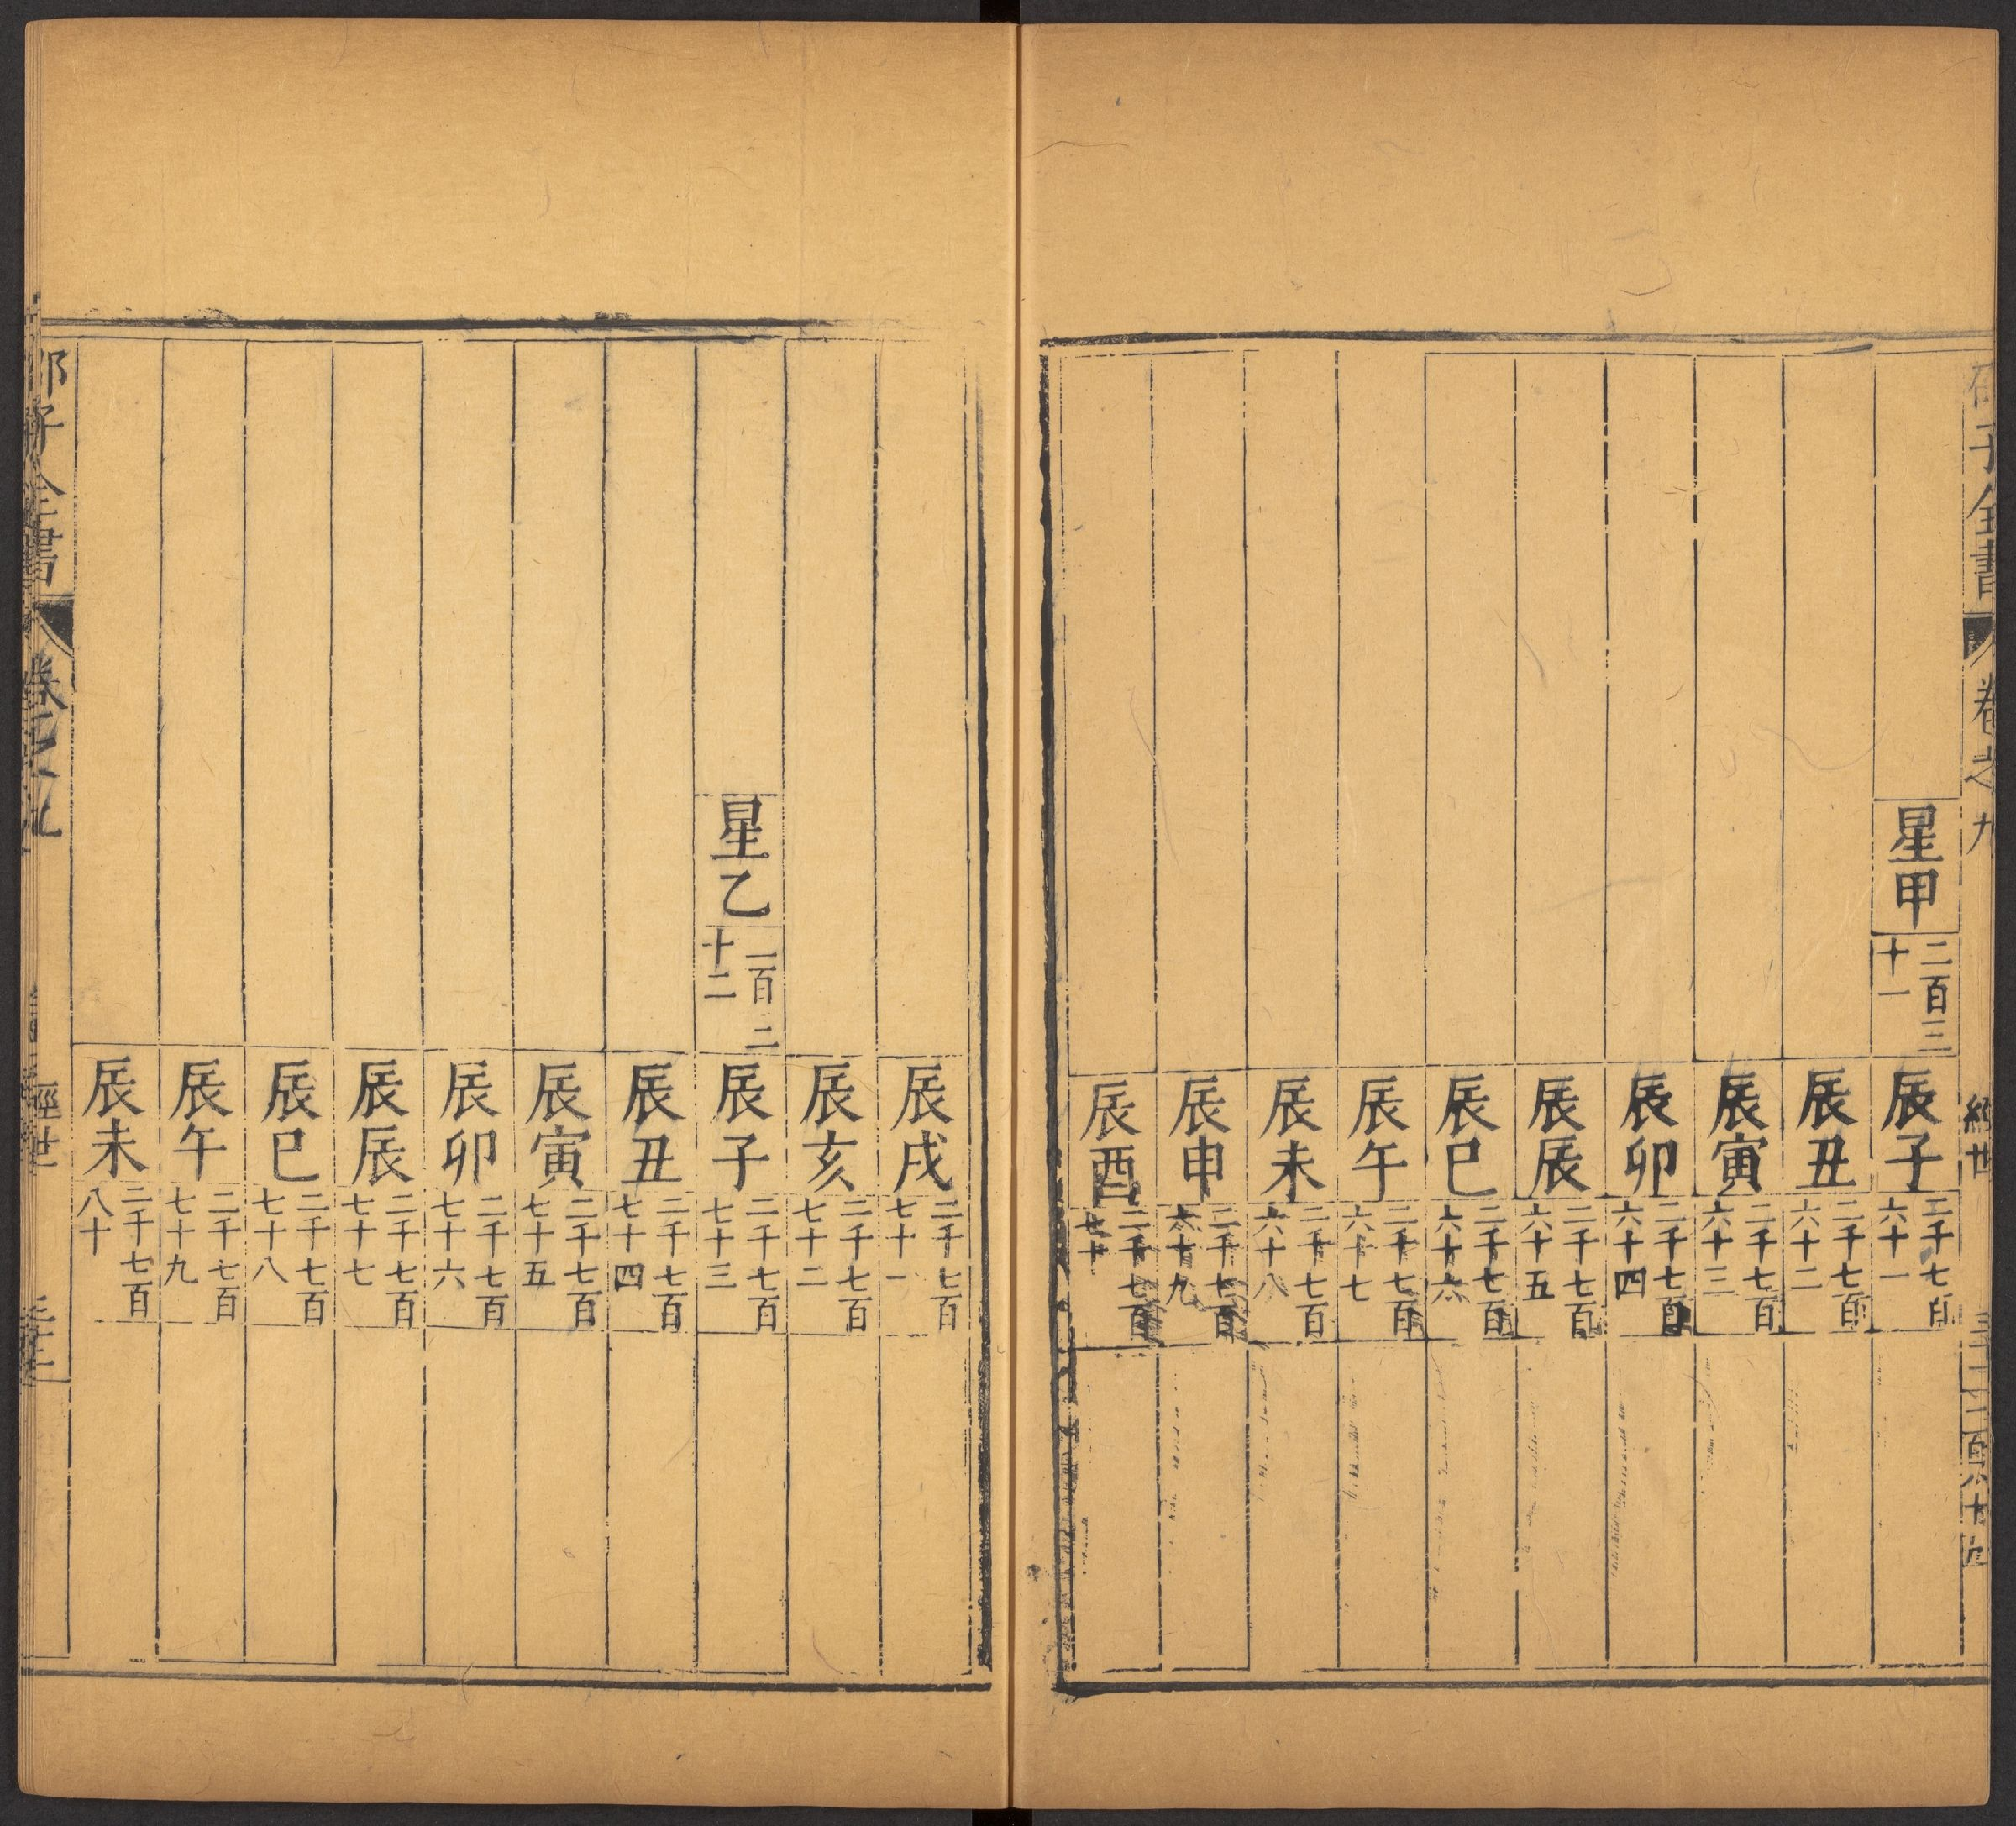 子全書 卷之九
星甲 二百三十一 辰子 二千七百六十一
辰丑 二千七百六十二
辰寅 二千七百六十三
辰卯 二千七百六十四
辰辰 二千七百六十五
辰巳 二千七百六十六
辰午 二千七百六十七
辰未 二千七百六十八
辰申 二千七百六十九
辰酉 二千七百七十
辰戌 二千七百七十一
辰亥 二千七百七十二
星乙 二百二十二 辰子 二千七百七十三
辰丑 二千七百七十四
辰寅 二千七百七十五
辰卯 二千七百七十六
辰辰 二千七百七十七
辰巳 二千七百七十八
辰午 二千七百七十九
辰未 二千七百八十
子全書 經世